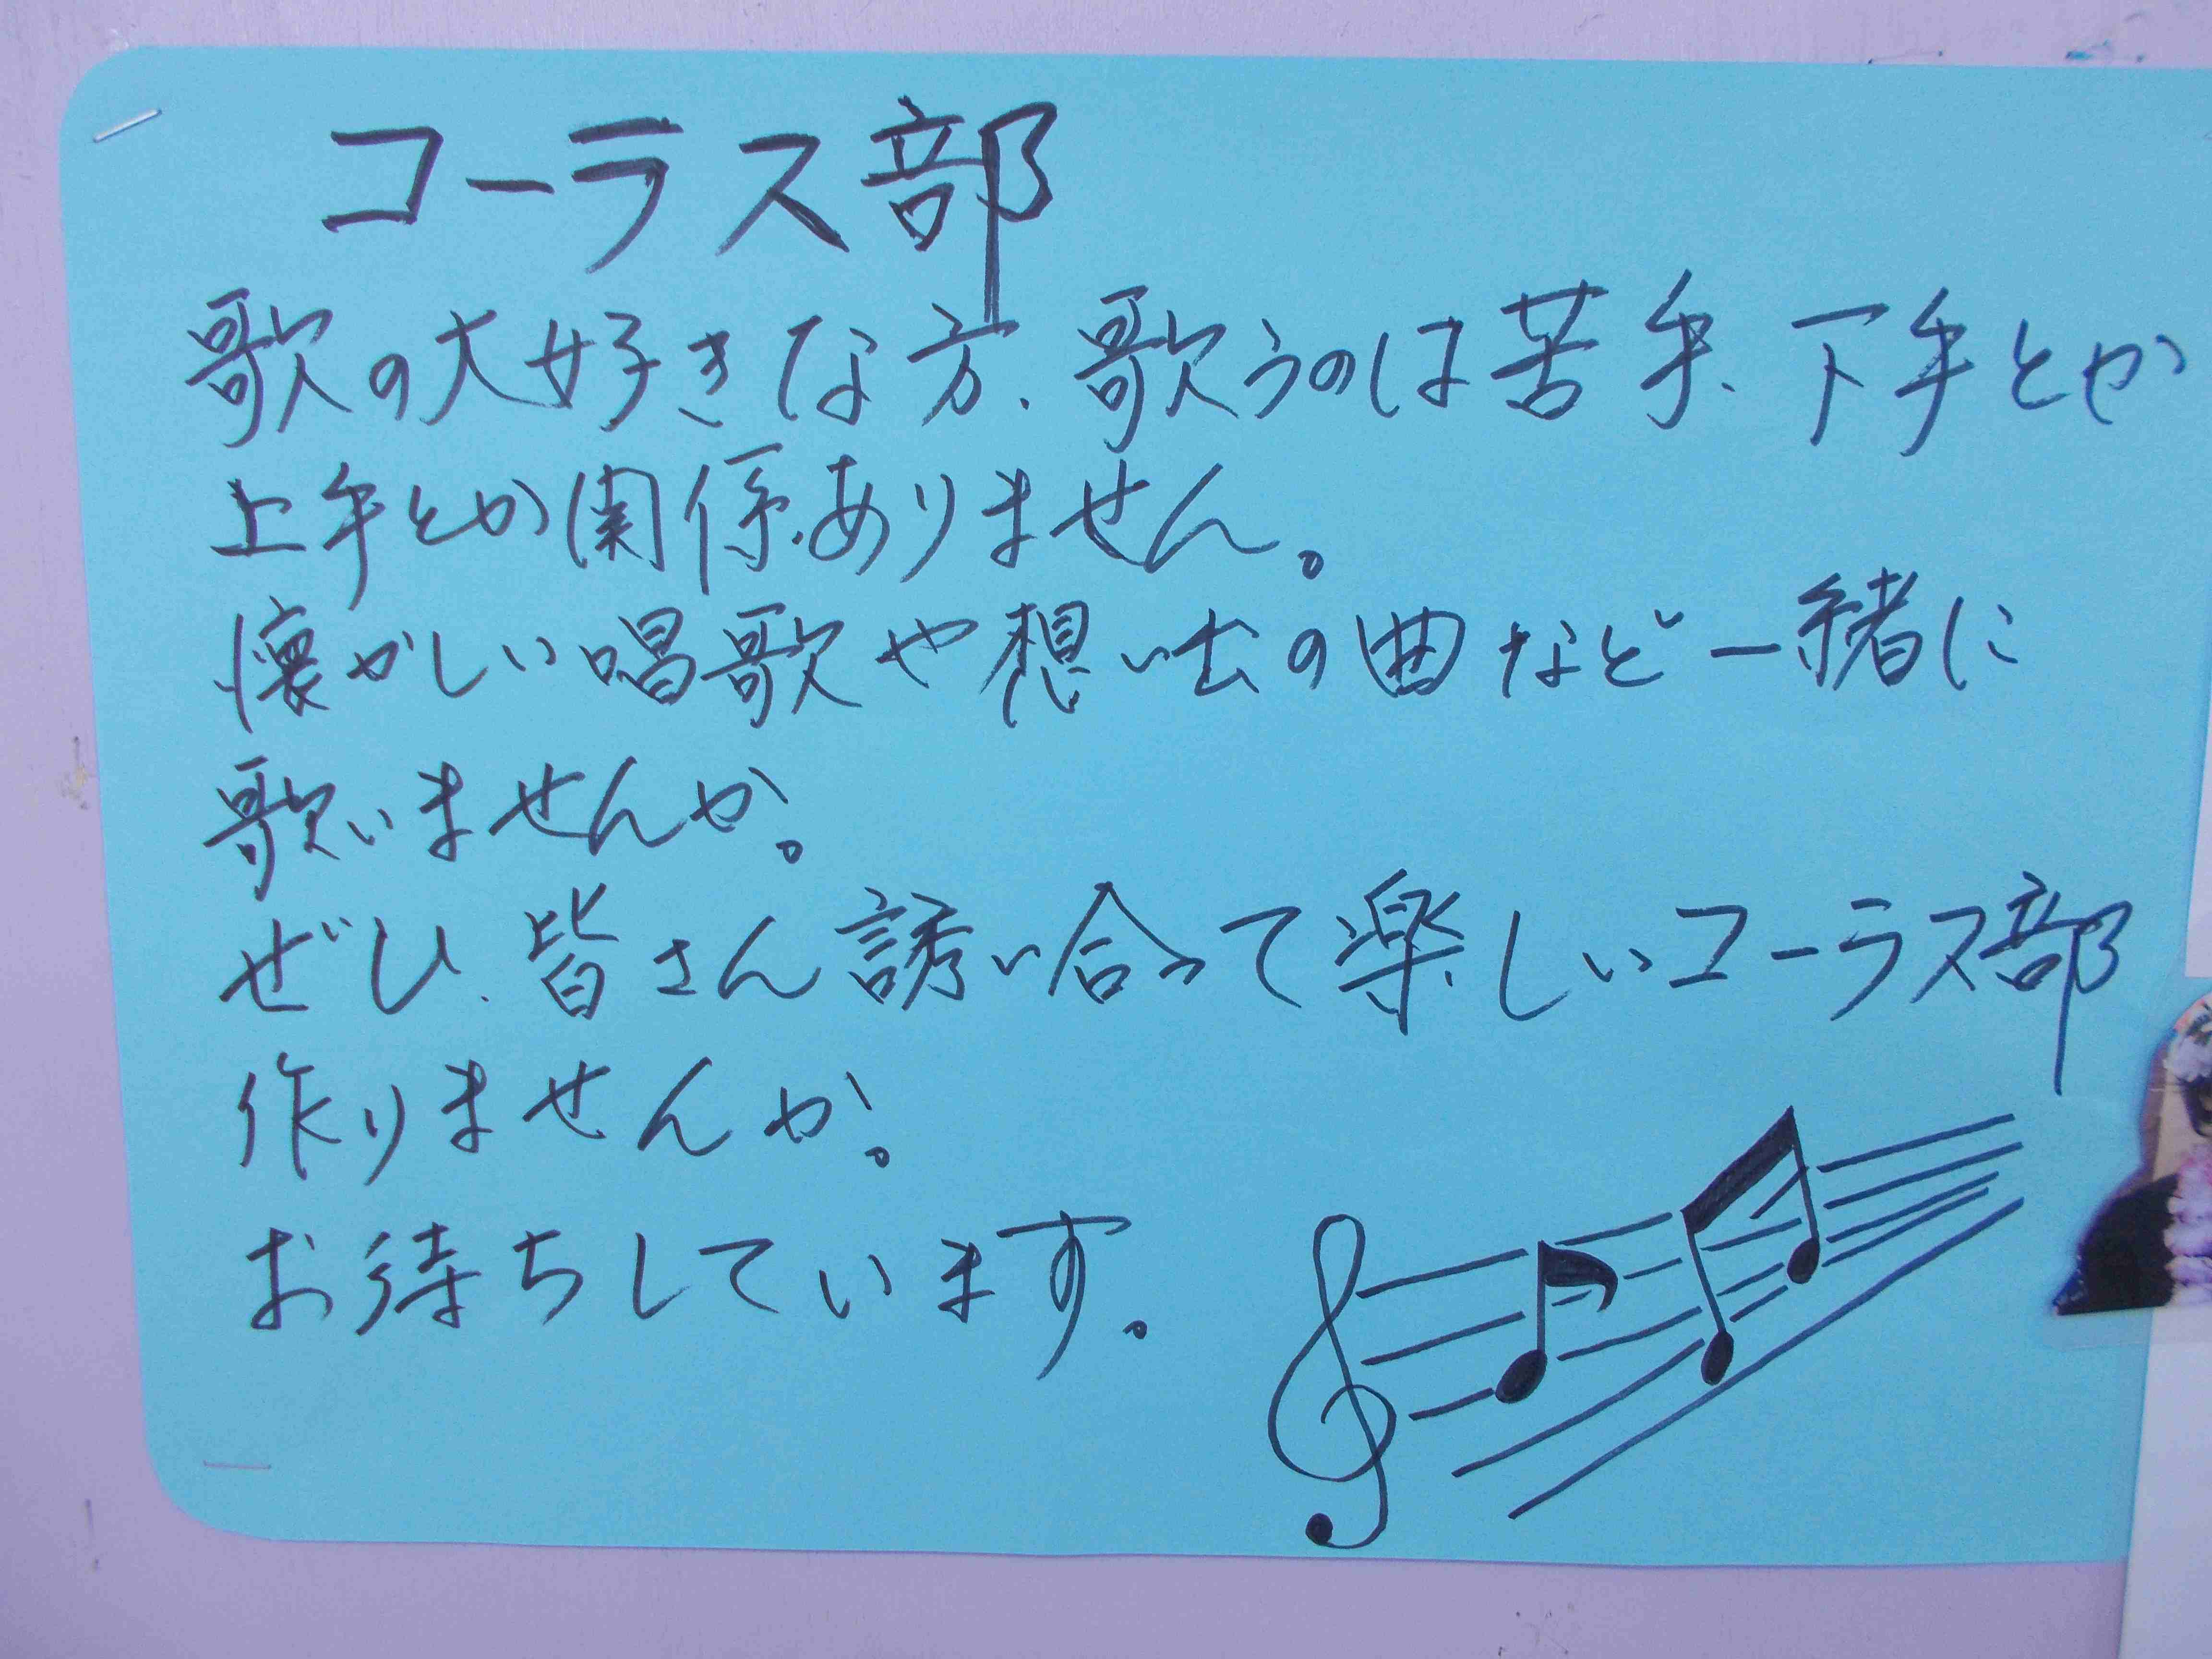 コーラス部
歌の大好きな方、歌うのは苦手、下手とか
上手とか関係ありません。
懐かしい唱歌や想い出の曲など一緒に
歌いませんか。
ぜひ、皆さん誘い合って楽しいコーラス部
作りませんか。
お待ちしています。